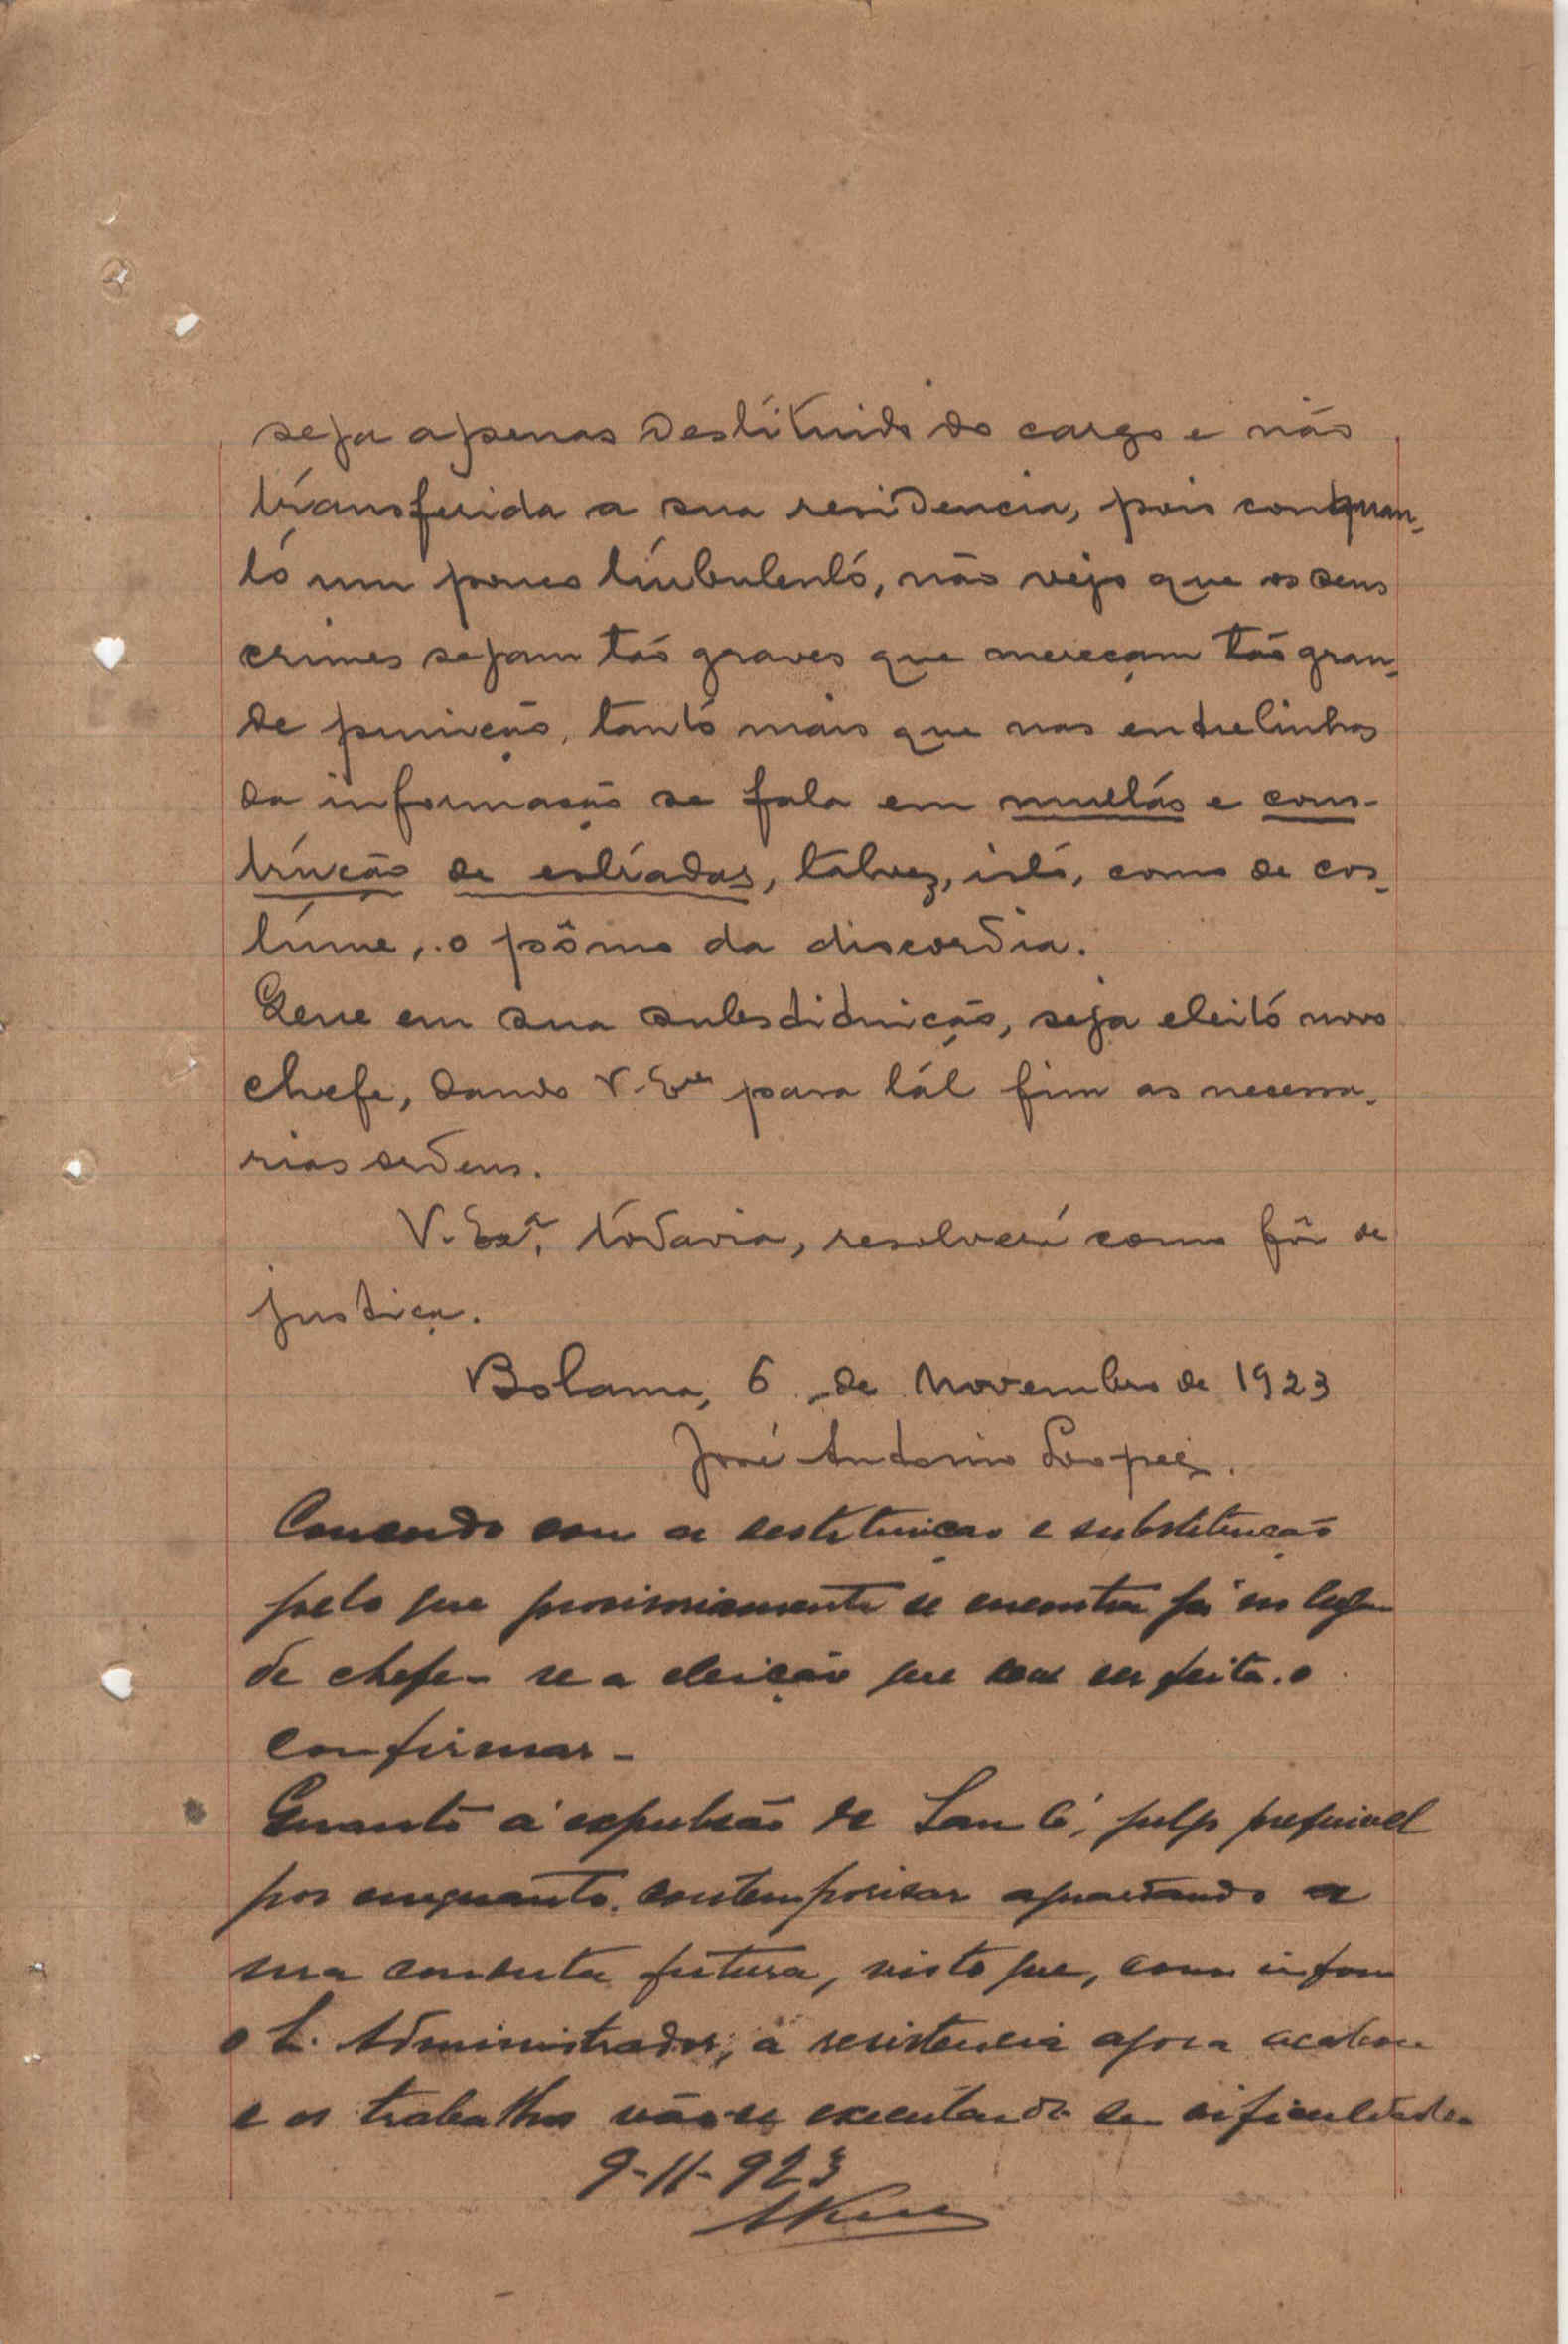 seja apenas destituido do cargo e não
transferida a sua residencia, pois conquan-
to um pouco turbulento, não vejo que os seus
crimes sejam tão graves que mereçam tão gran-
de punição, tanto mais que nas entrelinhas
da informação se fala em multas e cons-
trução de estradas, talvez, isto, como de cos-
tume, o pômo da discordia.
Que em sua substituição, seja eleito novo
chefe, dando V. Exª para tál fim as necessa-
rias ordens.
V. Exª, todavia, resolverá como fôr de
justiça.
Bolama, 6 de Novembro de 1923
José Antonio Lopes.
Concordo com a destituição e substituição
pelo que provisoriamente se encontra já no lugar
de chefe - se a eleição que tem ser feita o
confirmar -
Quanto á expulsão de Sam Cá, julgo preferivel
por enquanto contemporisar aguardando a
sua conducta futura, visto que, como informa
o S. Administrador, a resistencia agora acabou
e os trabalhos vão-se executando sem dificuldades
9-11-923